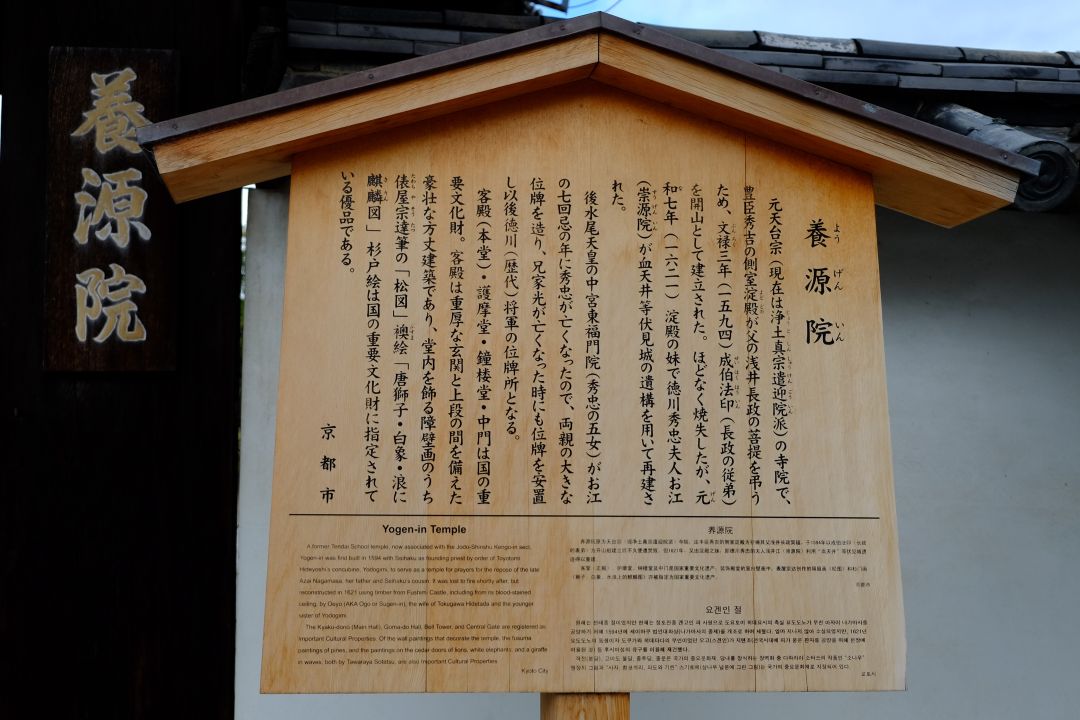 養源院
養源院
よう げん いん
元天台宗（現在は浄土真宗遣迎院派）の寺院で、
豊臣秀吉の側室淀殿が父の浅井長政の菩提を弔う
ため、文禄三年（一五九四）成伯法印（長政の従弟）
を開山として建立された。ほどなく焼失したが、元
和七年（一六二一）淀殿の妹で徳川秀忠夫人お江
（崇源院）が血天井等伏見城の遺構を用いて再建さ
れた。
後水尾天皇の中宮東福門院（秀忠の五女）がお江
の七回忌の年に秀忠が亡くなったので、両親の大きな
位牌を造り、兄家光が亡くなった時にも位牌を安置
し以後徳川（歴代）将軍の位牌所となる。
客殿（本堂）・護摩堂・鐘楼堂・中門は国の重
要文化財。客殿は重厚な玄関と上段の間を備えた
豪壮な方丈建築であり、堂内を飾る障壁画のうち
俵屋宗達筆の「松図」襖絵「唐獅子・白象・浪に
麒麟図」杉戸絵は国の重要文化財に指定されて
いる優品である。
京都市
Yogen-in Temple
A former Tendai School temple, now associated with the Jodo-Shinshu Kengo-in sect,
Yogen-in was first built in 1594 with Seihaku as founding priest by order of Toyotomi
Hideyoshi's concubine, Yodogimi, to serve as a temple for prayers for the repose of the late
Azai Nagamasa, her father and Seihaku's cousin. It was lost to fire shortly after, but
reconstructed in 1621 using timber from Fushimi Castle, including from its blood-stained
ceiling, by Oeyo (AKA Ogo or Sugen-in), the wife of Tokugawa Hidetada and the younger
sister of Yodogimi.
The Kyaku-dono (Main Hall), Goma-do Hall, Bell Tower, and Central Gate are registered as
Important Cultural Properties. Of the wall paintings that decorate the temple, the fusuma
paintings of pines, and the paintings on the cedar doors of lions, white elephants, and a giraffe
in waves, both by Tawaraya Sotatsu, are also Important Cultural Properties
Kyoto City
养源院
京都市
요겐인 절
교토시